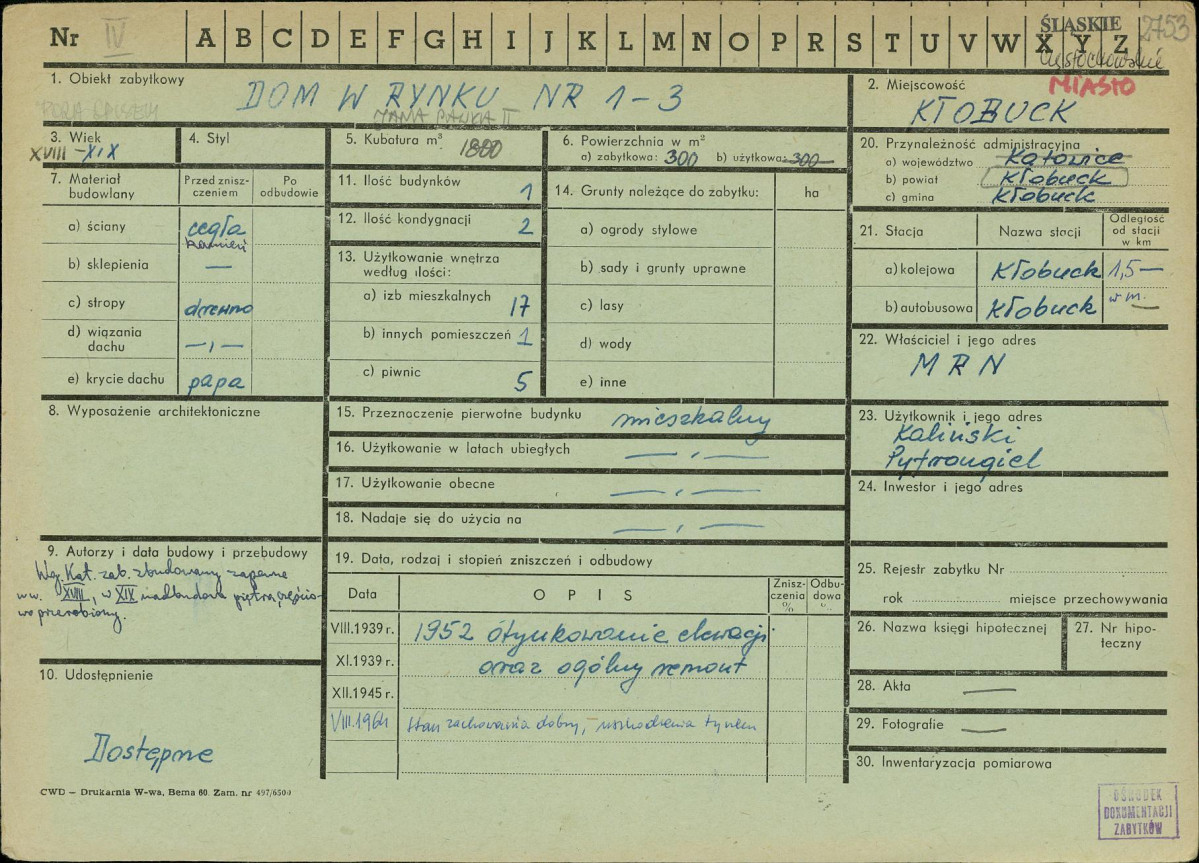 Nr IV A B C D E F G H I J K L M N O P R S T U V W X Y Z
ŚLASKIE 2753
częstochowskie
MIASTO
1. Obiekt zabytkowy
DOM W RYNKU NR 1-3
JANA PAWŁA II
2. Miejscowość
KŁOBUCK
3. Wiek
XVIII-XIX
4. Styl
5. Kubatura m³
1800
6. Powierzchnia w m²
a) zabytkowa: 300 b) użytkowa: 300
7. Materiał budowlany
Przed zniszczeniem
Po odbudowie
a) ściany cegła
kamień
b) sklepienia —
c) stropy drewno
d) wiązania dachu —„—
e) krycie dachu papa
8. Wyposażenie architektoniczne
9. Autorzy i data budowy i przebudowy
Wg. Kat. zab. zbudowany zapewne
w w. XVIII, w XIX nadbudowa piętra, częścio-
wo przerobiony.
10. Udostępnienie
Dostępne
CWD – Drukarnia W-wa, Bema 60. Zam. nr 497/6500
11. Ilość budynków 1
12. Ilość kondygnacji 2
13. Użytkowanie wnętrza według ilości:
a) izb mieszkalnych 17
b) innych pomieszczeń 1
c) piwnic 5
14. Grunty należące do zabytku: ha
a) ogrody stylowe
b) sady i grunty uprawne
c) lasy
d) wody
e) inne
15. Przeznaczenie pierwotne budynku mieszkalny
16. Użytkowanie w latach ubiegłych —„—
17. Użytkowanie obecne —„—
18. Nadaje się do użycia na —„—
19. Data, rodzaj i stopień zniszczeń i odbudowy
Data OPIS Zniszczenia % Odbudowa %
VIII.1939 r. 1952 otynkowanie elewacji
XI.1939 r. oraz ogólny remont
XII.1945 r.
VIII.1964 Stan zachowania dobry, – uszkodzenia tynków
20. Przynależność administracyjna
a) województwo Katowice
b) powiat Kłobuck
c) gmina Kłobuck
21. Stacja Nazwa stacji Odległość od stacji w km
a) kolejowa Kłobuck 1,5—
b) autobusowa Kłobuck w m. —
22. Właściciel i jego adres
MRN
23. Użytkownik i jego adres
Kaliński
24. Inwestor i jego adres
25. Rejestr zabytku Nr
rok miejsce przechowywania
26. Nazwa księgi hipotecznej
27. Nr hipoteczny
28. Akta —
29. Fotografie —
30. Inwentaryzacja pomiarowa
OŚRODEK
DOKUMENTACJI
ZABYTKÓW